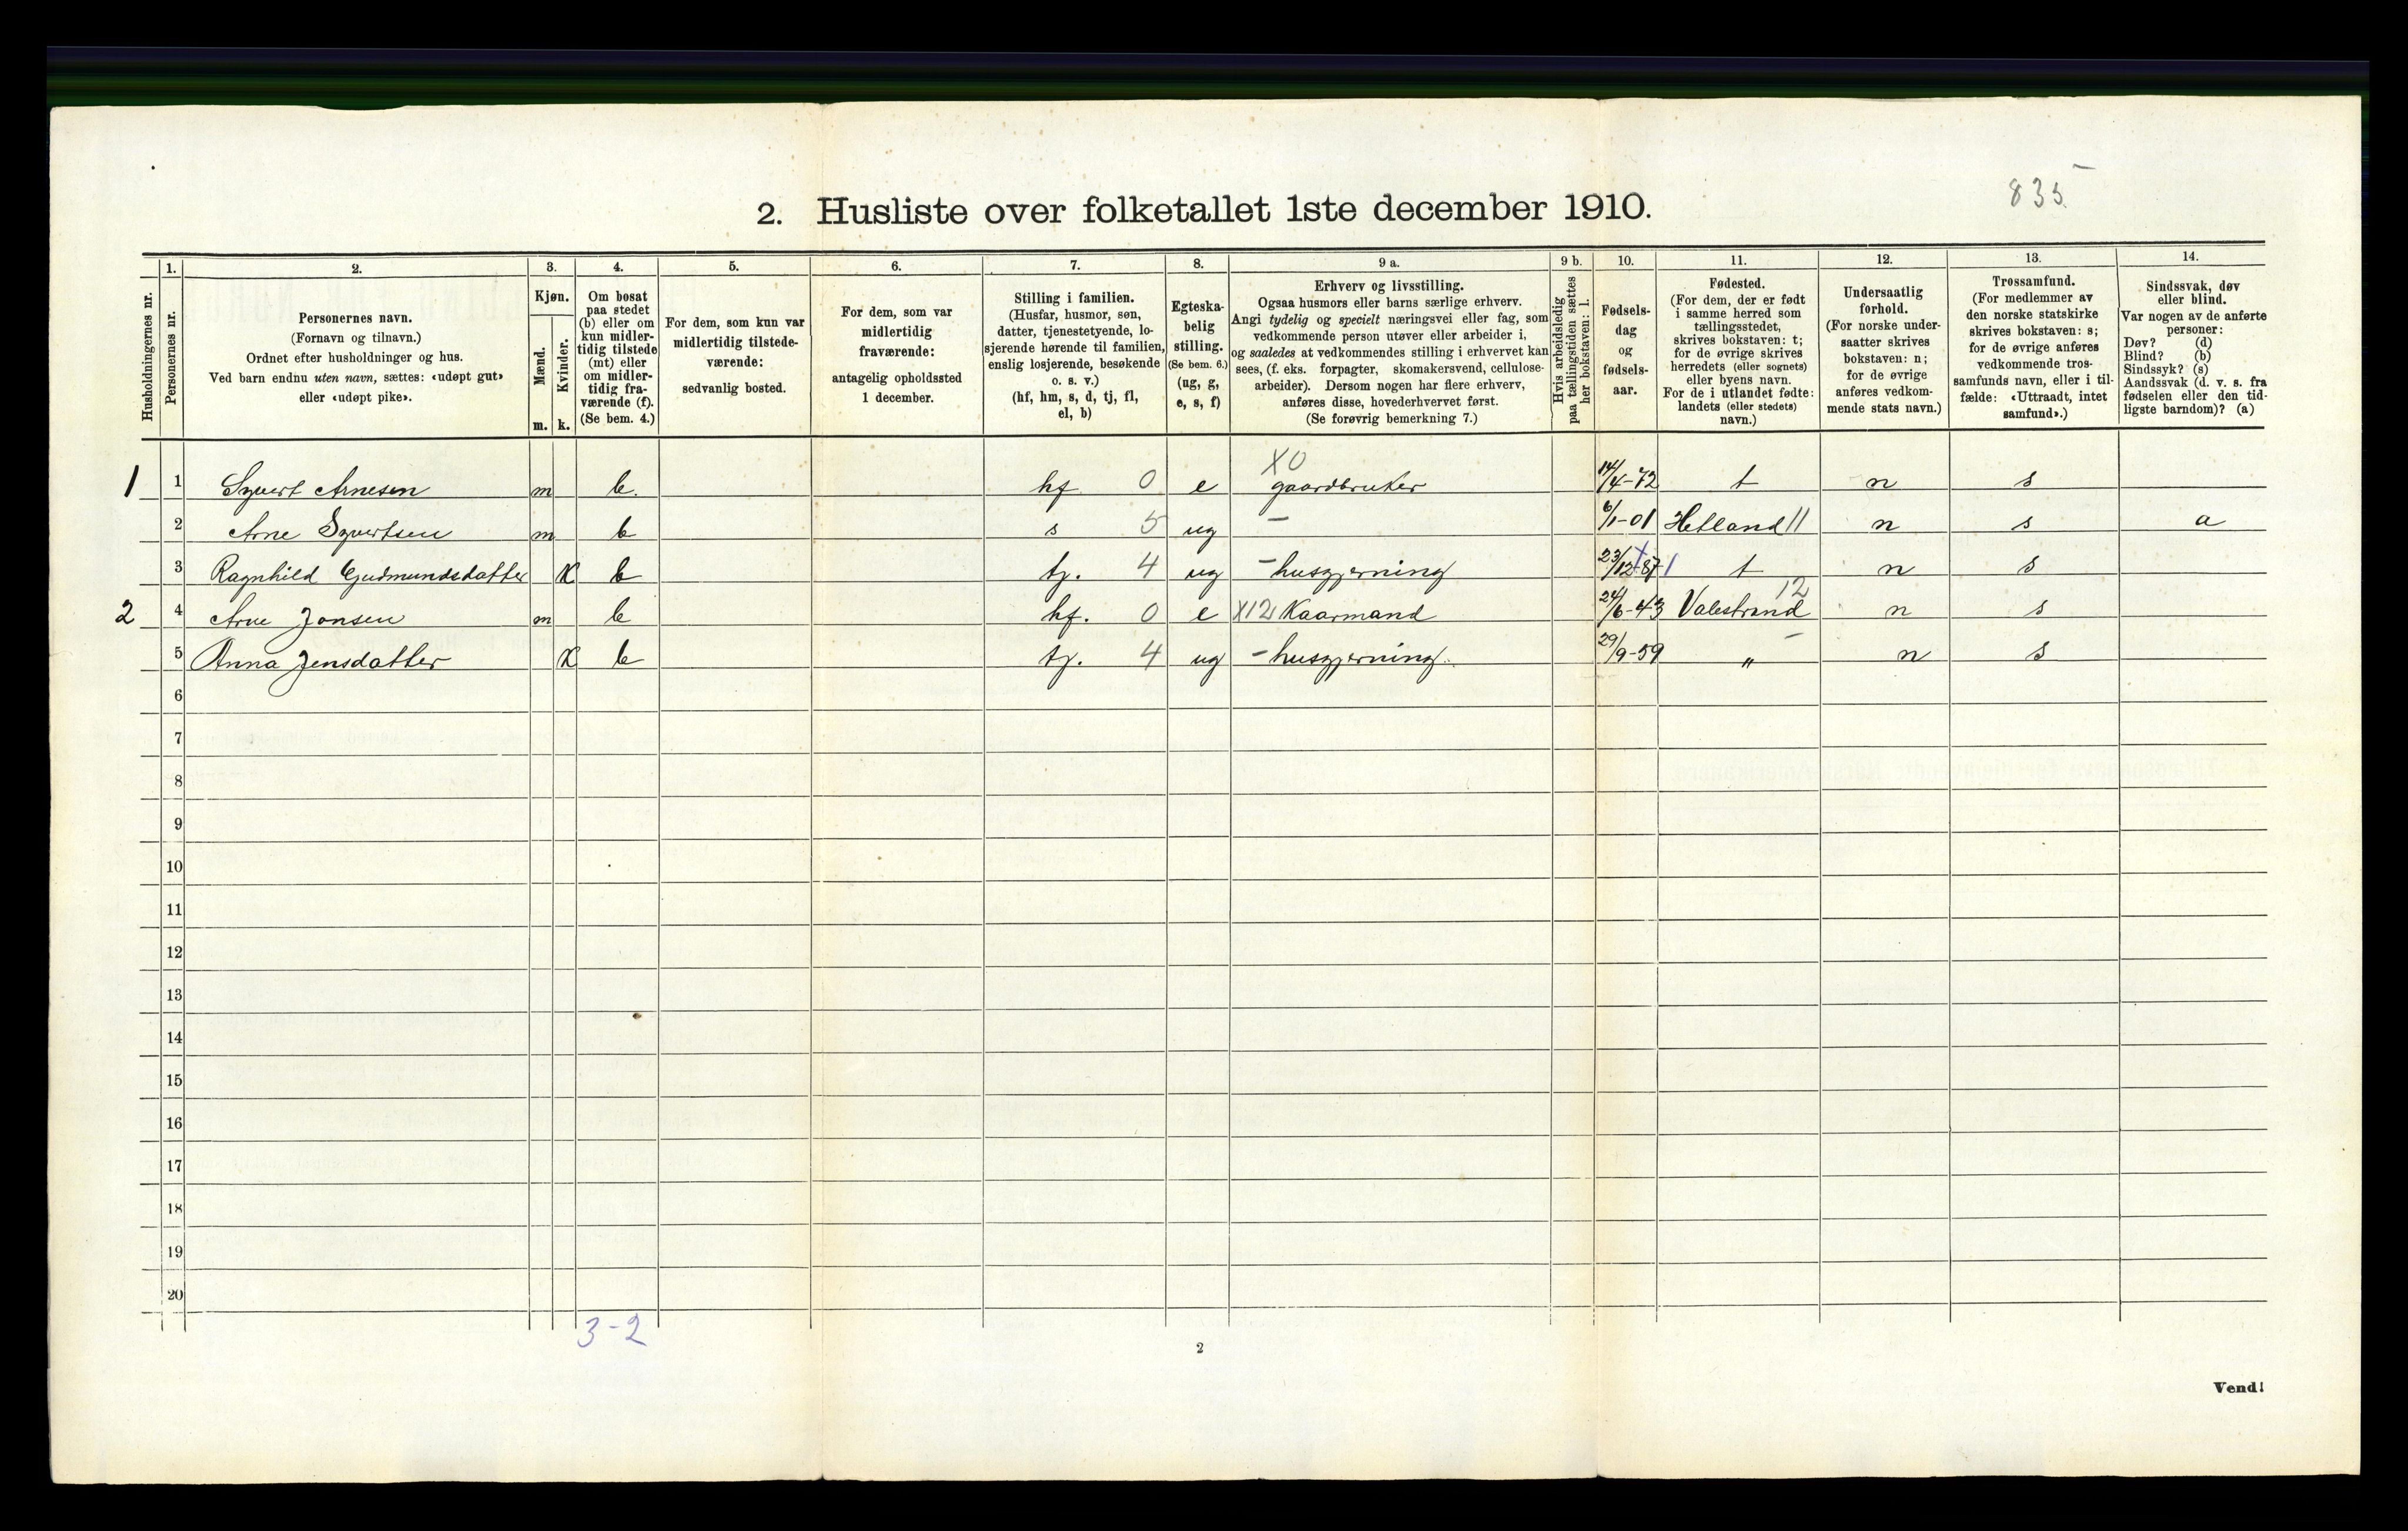 835
2. Husliste over folketallet 1ste december 1910.
Husholdningernes nr.
1.
Personernes nr.
2.
Personernes navn.
(Fornavn og tilnavn.)
Ordnet efter husholdninger og hus.
Ved barn endnu uten navn, sættes: «udøpt gut»
eller «udøpt pike».
3.
Kjøn.
Mænd.
Kvinder.
m. k.
4.
Om bosat
paa stedet
(b) eller om
kun midler-
tidig tilstede
(mt) eller
om midler-
tidig fra-
værende (f).
(Se bem. 4.)
5.
For dem, som kun var
midlertidig tilstede-
værende:
sedvanlig bosted.
6.
For dem, som var
midlertidig
fraværende:
antagelig opholdssted
1 december.
7.
Stilling i familien.
(Husfar, husmor, søn,
datter, tjenestetyende, lo-
sjerende hørende til familien,
enslig losjerende, besøkende
o. s. v.)
(hf, hm, s, d, tj, fl,
el, b)
8.
Egteska-
belig
stilling.
(Se bem. 6.)
(ug, g,
e, s, f)
9 a.
Erhverv og livsstilling.
Ogsaa husmors eller barns særlige erhverv.
Angi tydelig og specielt næringsvei eller fag, som
vedkommende person utøver eller arbeider i,
og saaledes at vedkommendes stilling i erhvervet kan
sees, (f. eks. forpagter, skomakersvend, cellulose-
arbeider). Dersom nogen har flere erhverv,
anføres disse, hovederhvervet først.
(Se forøvrig bemerkning 7.)
9 b.
Hvis arbeidsledig
paa tællingstiden sættes
her bokstaven: l.
10.
Fødsels-
dag
og
fødsels-
aar.
11.
Fødested.
(For dem, der er født
i samme herred som
tællingsstedet,
skrives bokstaven: t;
for de øvrige skrives
herredets (eller sognets)
eller byens navn.
For de i utlandet fødte:
landets (eller stedets)
navn.)
12.
Undersaatlig
forhold.
(For norske under-
saatter skrives
bokstaven: n;
for de øvrige
anføres vedkom-
mende stats navn.)
13.
Trossamfund.
(For medlemmer av
den norske statskirke
skrives bokstaven: s;
for de øvrige anføres
vedkommende tros-
samfunds navn, eller i til-
fælde: «Uttraadt, intet
samfund».)
14.
Sindssvak, døv
eller blind.
Var nogen av de anførte
personer:
Døv? (d)
Blind? (b)
Sindssyk? (s)
Aandssvak (d. v. s. fra
fødselen eller den tid-
ligste barndom)? (a)
X0
1 1 Syvert Arnesen m b. hf 0 e gaardbruker 14/4-72 t n s
2 Arne Syvertsen m b s 5 ug – 6/1-01 Hetland 11 n s a
3 Ragnhild Gudmundsdatter K b tj. 4 ug – husgjerning 23/12-87 1 t n s
2 4 Arne Jonsen m b hf. 0 e X12 Kaarmand 24/6-43 Valestrand 12 n s
5 Anna Jensdatter K b tj. 4 ug – husgjerning. 29/9-59 „ – n s
6
7
8
9
10
11
12
13
14
15
16
17
18
19
20
3-2
2
Vend!